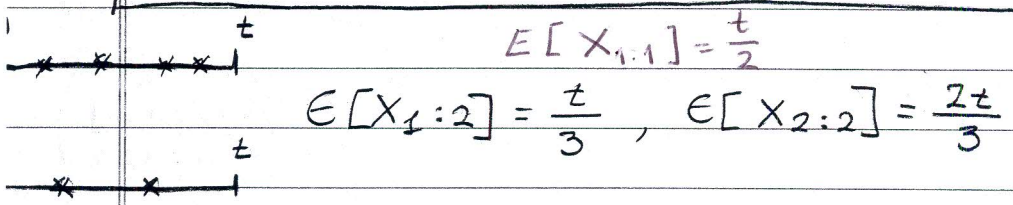 t
E[X₁:₁] = t/2
E[X₁:2] = t/3 , E[X₂:₂] = 2t/3
t